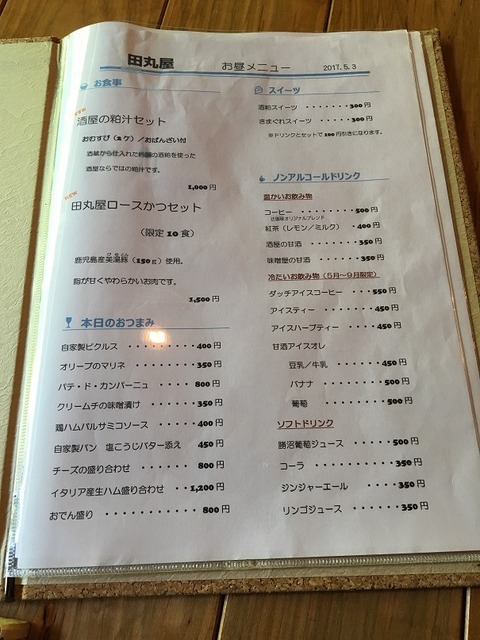 田丸屋 お昼メニュー 2017.5.3
お食事
酒屋の粕汁セット
おむすび(2ヶ)/おばんざい付
酒蔵から仕入れた吟醸の酒粕を使った
酒屋ならではの粕汁です。
1,000円
田丸屋ロースかつセット
(限定10食)
鹿児島産美湯豚(150g)使用。
脂が甘くやわらかいお肉です。
1,500円
本日のおつまみ
自家製ピクルス ・・・・・・・・・400円
オリーブのマリネ ・・・・・・・350円
パテ・ド・カンパーニュ ・・・800円
クリームチの味噌漬け ・・・・350円
鶏ハムバルサミコソース ・・・400円
自家製パン 塩こうじバター添え 450円
チーズの盛り合わせ ・・・・・・800円
イタリア産生ハム盛り合わせ ・・1,200円
おでん盛り ・・・・・・・・・・・800円
スイーツ
酒粕スイーツ ・・・・・・・300円
きまぐれスイーツ ・・・・・300円
※ドリンクとセットで100円引きになります。
ノンアルコールドリンク
温かいお飲み物
コーヒー ・・・・・・・・・500円
紅茶(レモン/ミルク) ・400円
酒屋の甘酒 ・・・・・・・350円
味噌屋の甘酒 ・・・・・・350円
冷たいお飲み物(5月~9月限定)
ダッチアイスコーヒー ・・・550円
アイスティー ・・・・・・・450円
アイスハーブティー ・・・・450円
甘酒アイスオレ
豆乳/牛乳 ・・・・・・450円
バナナ ・・・・・・・・500円
葡萄 ・・・・・・・・・500円
ソフトドリンク
勝沼葡萄ジュース ・・・・・500円
コーラ ・・・・・・・・・・350円
ジンジャーエール ・・・・350円
リンゴジュース ・・・・・・350円